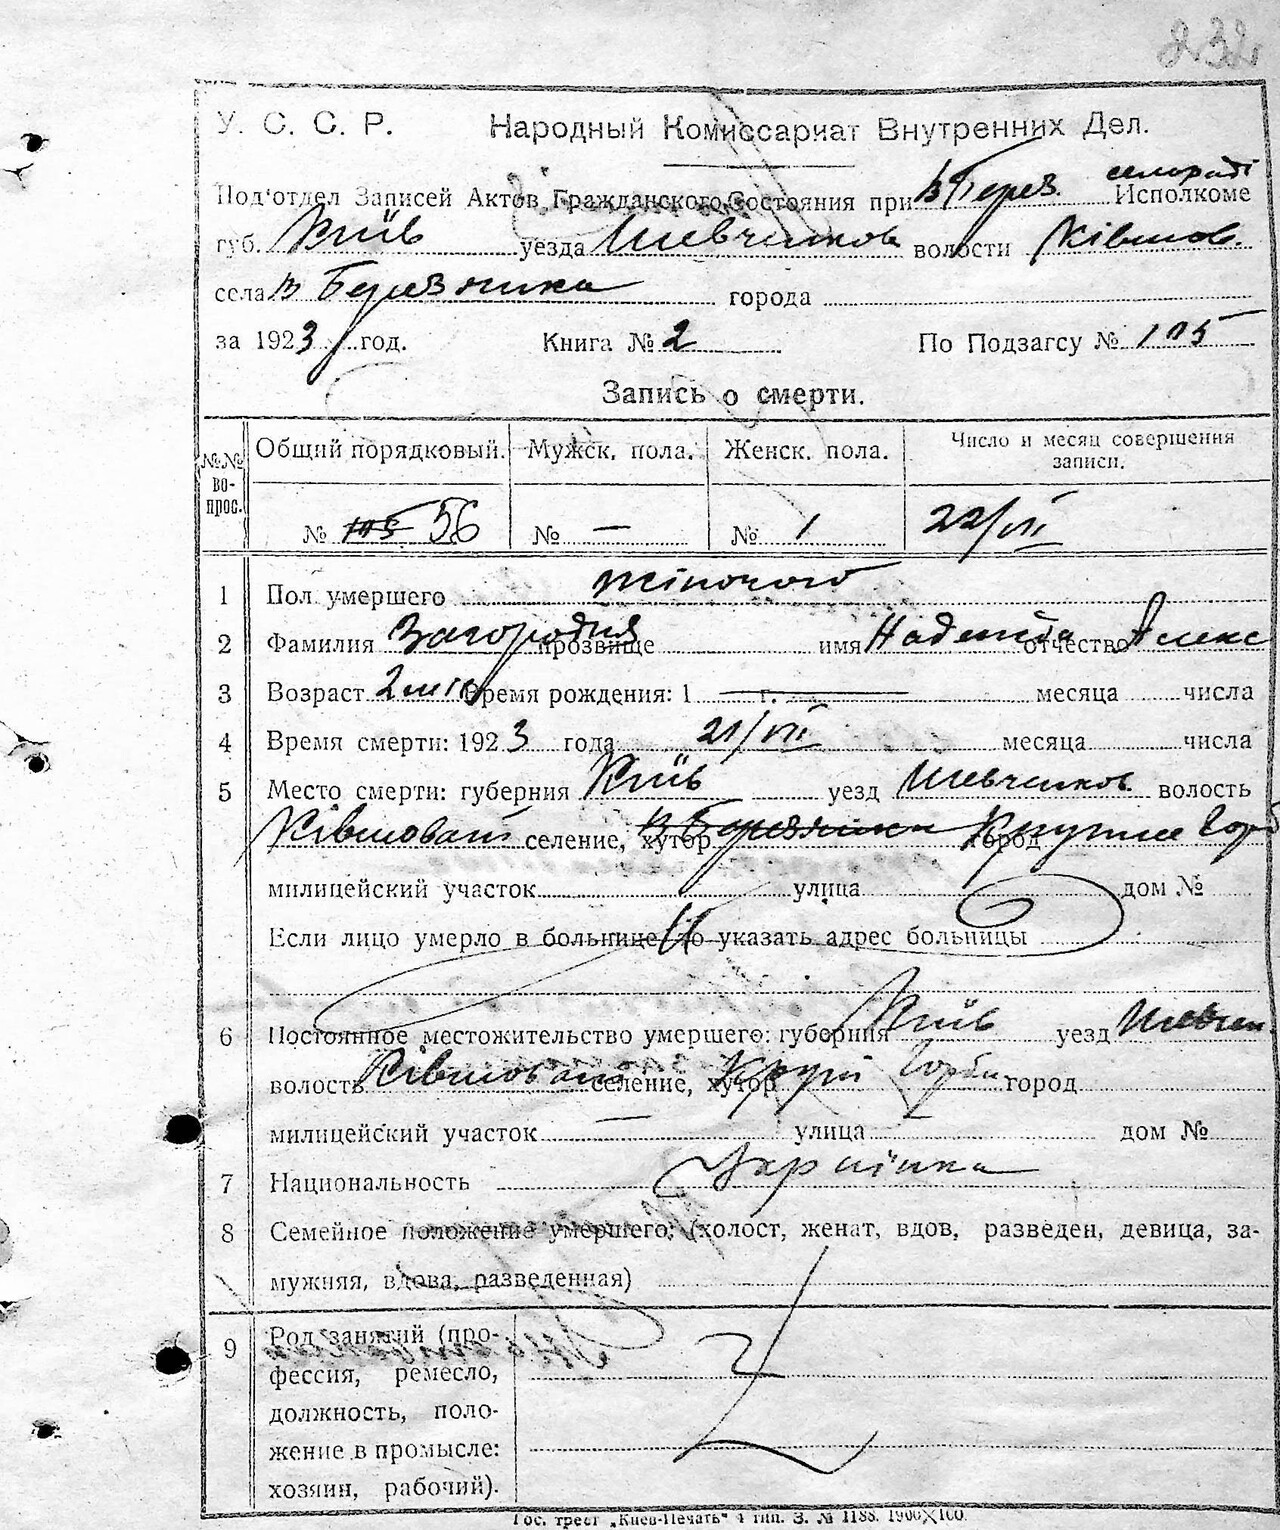 232
У. С. С. Р. Народный Комиссариат Внутренних Дел.
селораді
Под'отдел Записей Актов Гражданского Состояния при В Берез. Исполкоме
губ. Київ уезда Шевченков волости Ківшов.
села В Березянка города
за 1923 год. Книга № 2 По Подзагсу № 105
Запись о смерти.
№№ вопрос. Общий порядковый. Мужск. пола. Женск. пола. Число и месяц совершения записи.
№ 105 56 № — № 1 22/VII
1 Пол умершего жіночого
2 Фамилия Загородня прозвище имя Надежда отчество Алекс
3 Возраст 2 Время рождения: 1 г. месяца числа
4 Время смерти: 1923 года 21/VII месяца числа
5 Место смерти: губерния Київ уезд Шевченков волость
Ківшоват селение, хутор В Березянка город Крутые Горб
милицейский участок улица дом №
Если лицо умерло в больнице, то указать адрес больницы
6 Постоянное местожительство умершего: губерния Київ уезд Шевчен.
волость Ківшоват селение, хутор Круті Горби город
милицейский участок — улица дом №
7 Национальность Українка
8 Семейное положение умершего: (холост, женат, вдов, разведен, девица, за-
мужняя, вдова, разведенная)
9 Род занятий (про-
фессия, ремесло,
должность, поло-
жение в промысле:
хозяин, рабочий).
Гос. трест „Киев-Печать" 4 тип. З. № 1188. 1900×100.